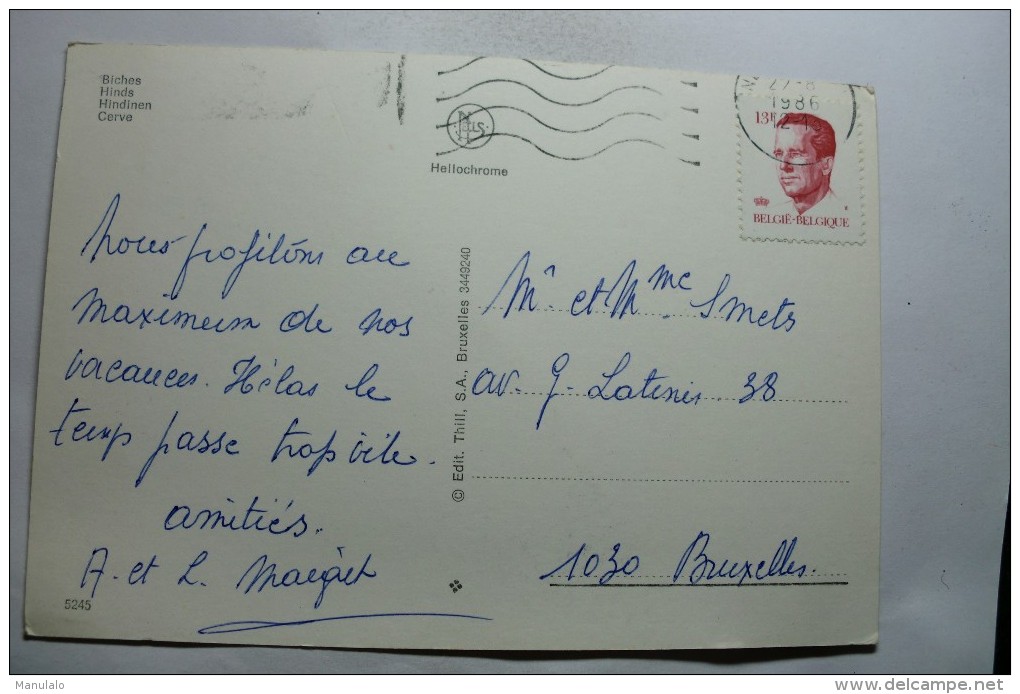 Biches
Hinds
Hindinen
Cerve
NELS
Hellochrome
1986
13F
BELGIË-BELGIQUE
Nous profitons au
maximum de nos
vacances. Hélas le
temps passe trop vite.
amitiés.
A. et L.
5245
© Edit. Thill, S.A., Bruxelles 3449240
Mr et Mme Smets
av. G. Latinis 38
1030 Bruxelles.
Manulalo
delcampe.net